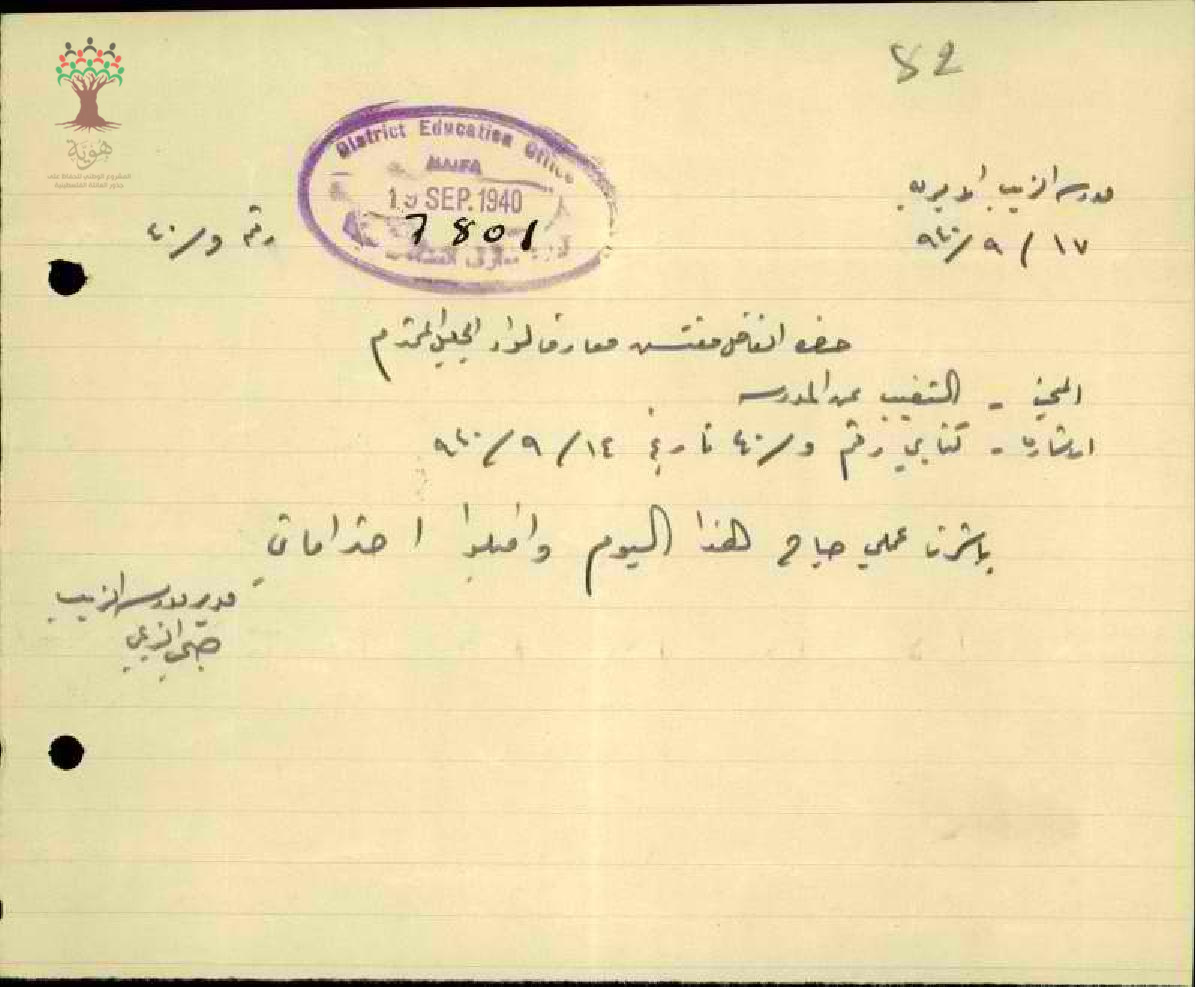 82
هوية
المشروع الوطني للحفاظ على
جذور العائلة الفلسطينية
District Education Office
HAIFA
19 SEP. 1940
7801
مدرسة الزيب الاميرية
١٧ / ٩ / ٩٤٠
رقم و/٤٠
حضرة الفاضل مفتش معارف لواء الجليل المحترم
البحث - التغيب عن المدرسه
اشارة - كتابي رقم و/٤٠ تاريخ ١٤ / ٩ / ٩٤٠
باشرت عملي صباح هذا اليوم واقبلوا احتراماتي
مدير مدرسة الزيب
صبحي